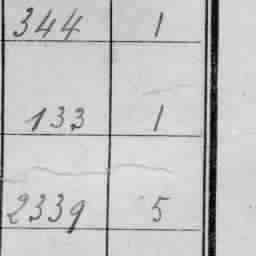 344 1
133 1
2339 5